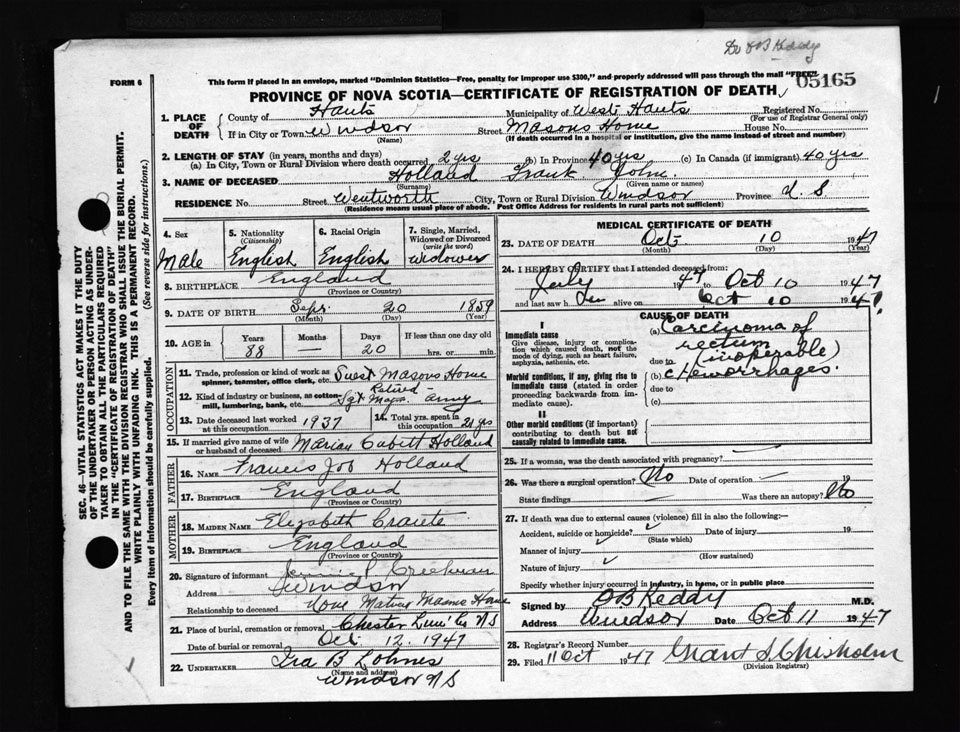 Dr O B Keddy
FORM 6
This form if placed in an envelope, marked "Dominion Statistics—Free, penalty for improper use $300," and properly addressed will pass through the mail "FREE"
05165
PROVINCE OF NOVA SCOTIA—CERTIFICATE OF REGISTRATION OF DEATH
1. PLACE OF DEATH County of Hants Municipality of West Hants Registered No.
(For use of Registrar General only)
If in City or Town Windsor Street Masons Home House No.
(Name) (If death occurred in a hospital or institution, give the name instead of street and number)
2. LENGTH OF STAY (in years, months and days)
(a) In City, Town or Rural Division where death occurred 2 yrs (b) In Province 40 yrs (c) In Canada (if immigrant) 40 yrs
3. NAME OF DECEASED Holland Frank John
(Surname) (Given name or names)
RESIDENCE No. Street Wentworth City, Town or Rural Division Windsor Province N.S
(Residence means usual place of abode. Post Office Address for residents in rural parts not sufficient)
4. Sex Male
5. Nationality (Citizenship) English
6. Racial Origin English
7. Single, Married, Widowed or Divorced (write the word) Widower
8. BIRTHPLACE England
(Province or Country)
9. DATE OF BIRTH Sept 20 1859
(Month) (Day) (Year)
10. AGE in Years 88 Months Days 20 If less than one day old hrs. or min.
OCCUPATION
11. Trade, profession or kind of work as spinner, teamster, office clerk, etc. Guest Masons Home
12. Kind of industry or business, as cotton-mill, lumbering, bank, etc. Retired Sgt Major Army
13. Date deceased last worked at this occupation 1937
14. Total yrs. spent in this occupation 21 yrs
15. If married give name of wife or husband of deceased Marian Cubitt Holland
FATHER
16. Name Francis Job Holland
17. BIRTHPLACE England
(Province or Country)
MOTHER
18. MAIDEN NAME Elizabeth
19. BIRTHPLACE England
(Province or Country)
20. Signature of informant Jennie P Creelman
Address Windsor
Relationship to deceased None Matron Masons Home
21. Place of burial, cremation or removal Chester Lun' Co NS
Date of burial or removal Oct. 12. 1947
22. UNDERTAKER Ira B Lohnes
(Name and address)
Windsor NS
MEDICAL CERTIFICATE OF DEATH
23. DATE OF DEATH Oct 10 1947
(Month) (Day) (Year)
24. I HEREBY CERTIFY that I attended deceased from:
July 1947 to Oct 10 1947
and last saw him alive on Oct 10 1947
CAUSE OF DEATH
I
Immediate cause
Give disease, injury or complication which caused death, not the mode of dying, such as heart failure, asphyxia, asthenia, etc.
(a) Carcinoma of rectum
due to (inoperable)
Morbid conditions, if any, giving rise to immediate cause (stated in order proceeding backwards from immediate cause).
(b) c Hemorrhages.
due to
(c)
II
Other morbid conditions (if important) contributing to death but not causally related to immediate cause.
25. If a woman, was the death associated with pregnancy?
26. Was there a surgical operation? No Date of operation 19
State findings Was there an autopsy? No
27. If death was due to external causes (violence) fill in also the following:—
Accident, suicide or homicide? Date of injury 19
(State which)
Manner of injury
(How sustained)
Nature of injury
Specify whether injury occurred in industry, in home, or in public place
Signed by O B Keddy M.D.
Address Windsor Date Oct 11 1947
28. Registrar's Record Number
29. Filed 11 Oct 1947 Grant S Chisholm
(Division Registrar)
SEC. 46 VITAL STATISTICS ACT MAKES IT THE DUTY
OF THE UNDERTAKER OR PERSON ACTING AS UNDER-
TAKER TO OBTAIN ALL THE PARTICULARS REQUIRED
IN THE "CERTIFICATE OF REGISTRATION OF DEATH"
AND TO FILE THE SAME WITH THE DIVISION REGISTRAR WHO SHALL ISSUE THE BURIAL PERMIT.
WRITE PLAINLY WITH UNFADING INK. THIS IS A PERMANENT RECORD.
Every item of information should be carefully supplied. (See reverse side for instructions.)